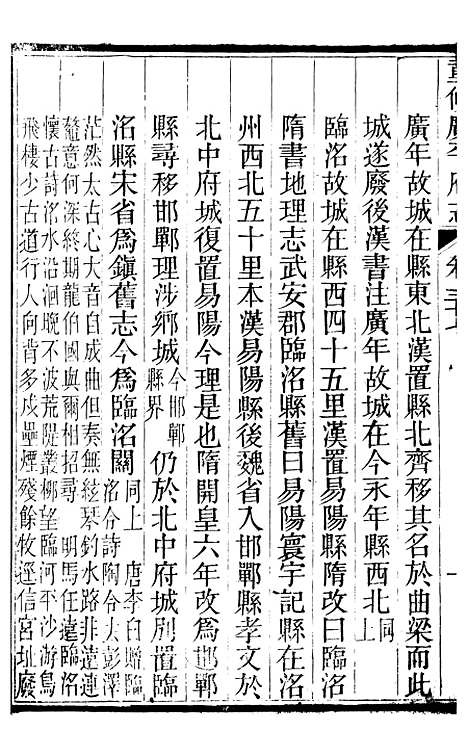 重修廣平府志 卷三十七
廣年故城在縣東北漢置縣北齊移其名於曲梁而此
城遂廢後漢書注廣年故城在今永年縣西北同上
臨洺故城在縣西四十五里漢置易陽縣隋改曰臨洺
隋書地理志武安郡臨洺縣舊曰易陽寰宇記縣在洺
州西北五十里本漢易陽縣後魏省入邯鄲縣孝文於
北中府城復置易陽今理是也隋開皇六年改爲邯鄲
縣尋移邯鄲理涉鄉城今邯鄲縣界仍於北中府城別置臨
洺縣宋省爲鎭舊志今爲臨洺關同上 唐李白贈臨洺令詩陶令去彭澤
茫然太古心大音自成曲但奏無絃琴釣水路非遠連
鼇意何深終期龍伯國與爾相招尋 明馬任遠臨洺
懷古詩洺水沿洄晚不波荒隄叢柳望臨河平沙游鳥
飛棲少古道行人向背多戍壘煙殘餘牧逕信宮址廢